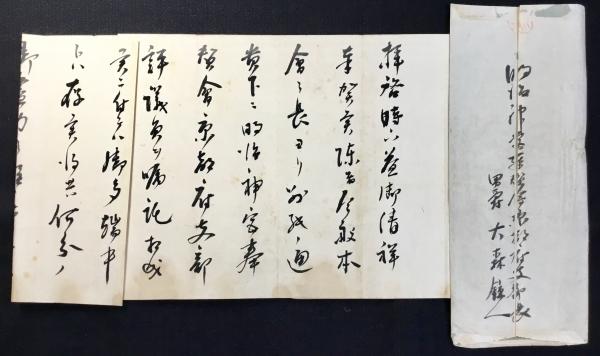 拝啓時下益御清祥
奉賀候陳者今般本
会々長ヨリ別紙ノ通
貴下ニ明治神宮奉
賛会京都府支部
評議員ヲ嘱託相成
候ニ付テハ御多端中
トハ存候得共何分ノ
明治神宮奉賛会京都府支部長
男爵大森鍾一